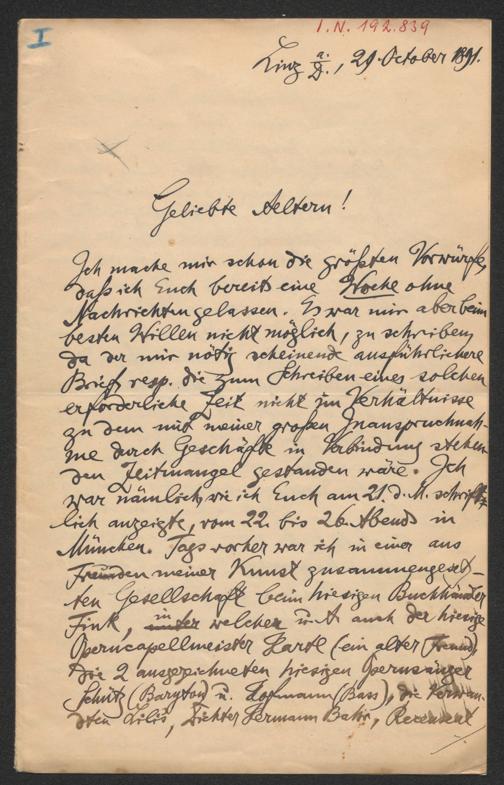 I
I.N. 192.839
Linz a./D., 29. October 1891.
Geliebte Aeltern!
Ich mache mir schon die größten Vorwürfe,
daß ich Euch bereits eine Woche ohne
Nachrichten gelassen. Es war mir aber beim
besten Willen nicht möglich, zu schreiben,
da der mir nötig scheinende ausführlichere
Brief, resp. die zum Schreiben eines solchen
erforderliche Zeit nicht im Verhältnisse
zu dem mit meiner großen Inanspruchnah-
me durch Geschäfte in Verbindung stehen-
den Zeitmangel gestanden wäre. Ich
war nämlich, wie ich Euch am 21. d. M. schrift-
lich anzeigte, vom 22. bis 26. Abends in
München. Tags vorher war ich in einer aus
Freunden meiner Kunst zusammengesetz-
ten Gesellschaft beim hiesigen Buchhändler
Fink, in welcher u. A. auch der hiesige
Operncapellmeister Hartl (ein alter Freund),
die 2 ausgezeichneten hiesigen Opernsänger
Schütz (Baryton) u. Hofmann (Bass), die Verwan-
dten Lilis, Dichter Hermann Bahr, Recensent